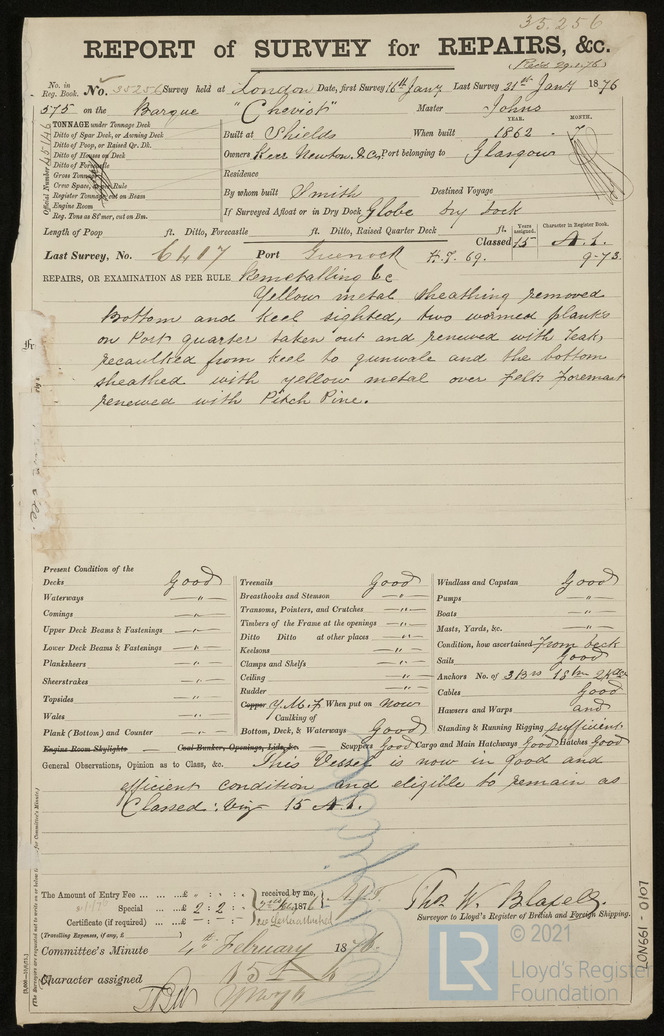 35256
REPORT of SURVEY for REPAIRS, &c.
No. in Reg. Book. No. 35256 Survey held at London Date, first Survey 16th Jany Last Survey 31st Jany 1876
575 on the Barque "Cheviot" Master Johns
TONNAGE under Tonnage Deck
Ditto of Spar Deck, or Awning Deck
Ditto of Poop, or Raised Qr. Dk.
Ditto of Houses on Deck
Ditto of Forecastle
Gross Tonnage
Crew Space, as per Rule
Register Tonnage, cut on Beam
Engine Room
Reg. Tons as St'mer, cut on Bm.
Official Number 45146
YEAR. MONTH.
Built at Shields When built 1862 - 7
Owners Kerr Newton, & Co. Port belonging to Glasgow
Residence
By whom built Smith Destined Voyage
If Surveyed Afloat or in Dry Dock Globe Dry Dock
Length of Poop ft. Ditto, Forecastle ft. Ditto, Raised Quarter Deck ft.
Years assigned. Character in Register Book.
Classed 15 A.1.
Last Survey, No. 6417 Port Greenock F.J. 69. 9-73.
REPAIRS, OR EXAMINATION AS PER RULE Remetalling &c
Yellow metal sheathing removed
Bottom and keel sighted, two wormed planks
on Port quarter taken out and renewed with Teak,
recaulked from keel to gunwale and the bottom
sheathed with yellow metal over felt: Foremast
renewed with Pitch Pine.
Present Condition of the
Decks Good
Waterways "
Comings "
Upper Deck Beams & Fastenings "
Lower Deck Beams & Fastenings "
Planksheers "
Sheerstrakes "
Topsides "
Wales "
Plank (Bottom) and Counter "
Treenails Good
Breasthooks and Stemson "
Transoms, Pointers, and Crutches "
Timbers of the Frame at the openings "
Ditto Ditto at other places "
Keelsons "
Clamps and Shelfs "
Ceiling "
Rudder "
Copper Y.M.F When put on Now
Caulking of
Bottom, Deck, & Waterways Good
Windlass and Capstan Good
Pumps "
Boats "
Masts, Yards, &c. "
Condition, how ascertained from deck
Sails Good
Anchors No. of 3 Brs 1 Stm 2 Kdgs
Cables Good
Hawsers and Warps and
Standing & Running Rigging sufficient
Engine Room Skylights Coal Bunker, Openings, Lids, &c. Scuppers Good Cargo and Main Hatchways Good Hatches Good
General Observations, Opinion as to Class, &c. This Vessel is now in good and
efficient condition and eligible to remain as
Classed: Viz 15 A.1.
The Amount of Entry Fee £ : : received by me,
Special £ 2 : 2 : 1876
Certificate (if required) £ : : No Certificate required
(Travelling Expenses, if any, £ )
Surveyor to Lloyd's Register of British and Foreign Shipping.
Committee's Minute 4th February 1876.
Character assigned 15 A 1
LON661-0107
© 2021
LR
Lloyd's Register
Foundation